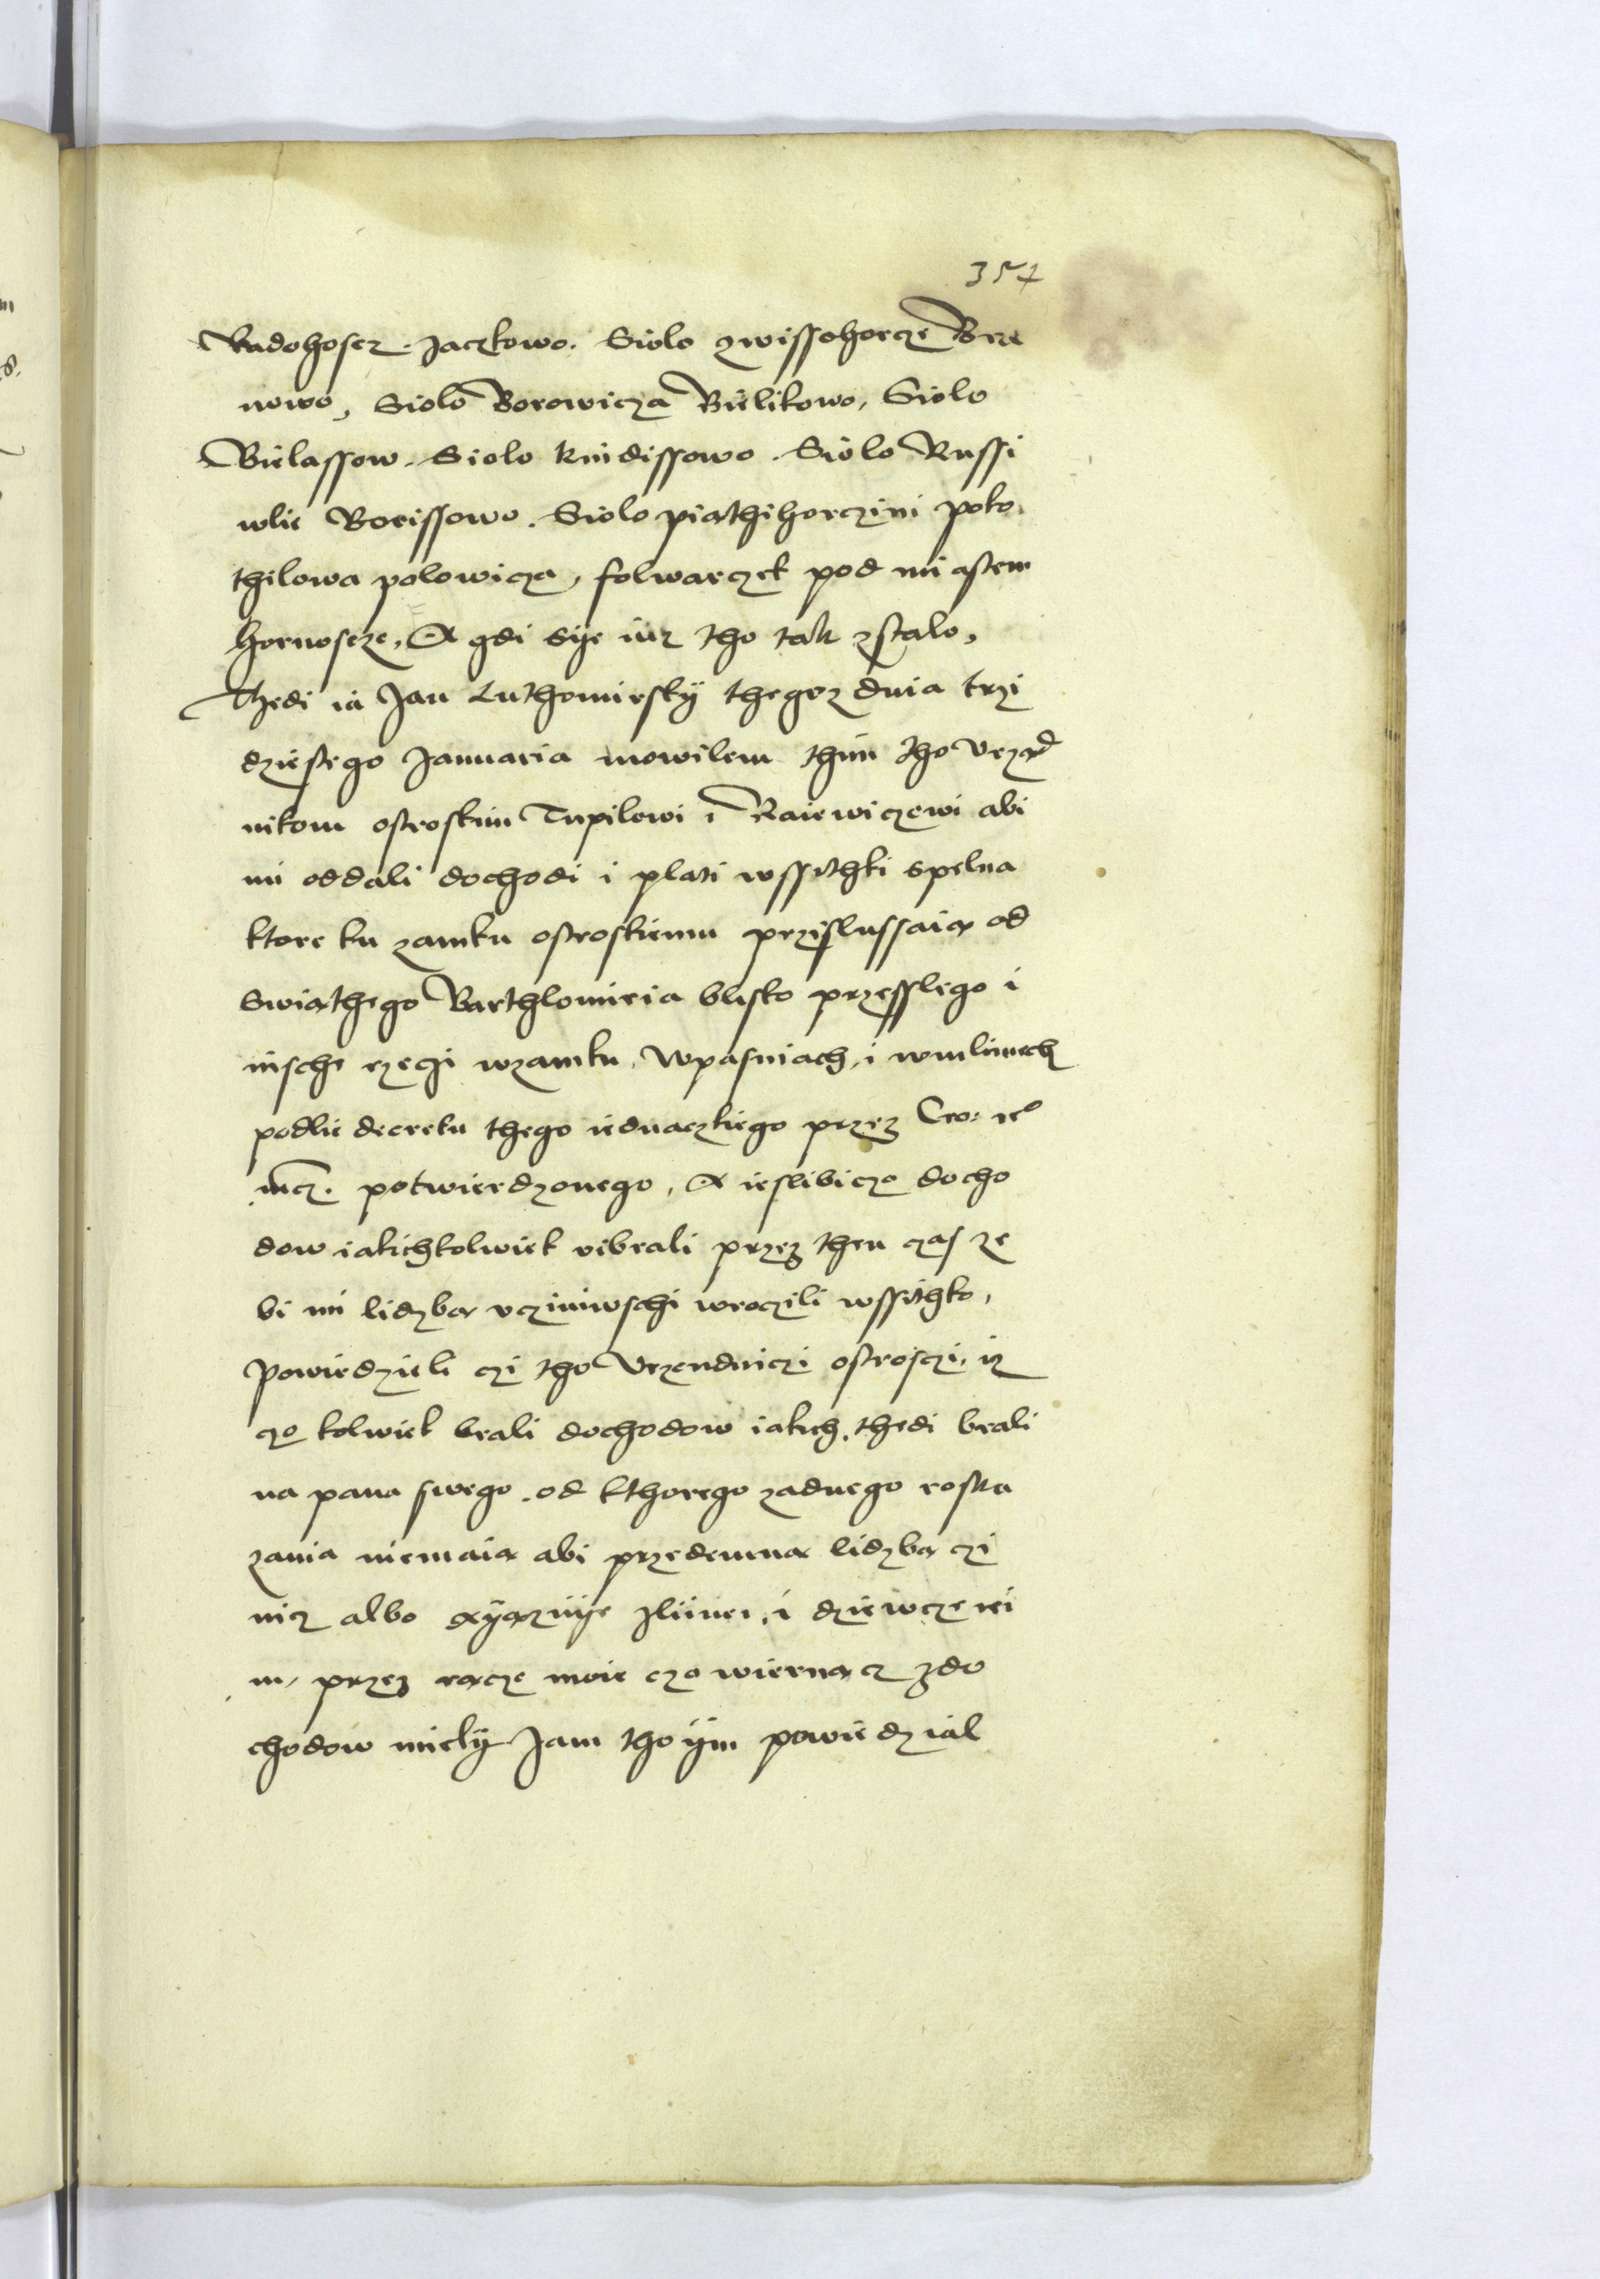 357
Radohoscz. Jaczkowo. Siolo zwissohorcze Brze
nowo, Siolo Borowicza Bielikowo, Siolo
Bielassow. Siolo Knidissowo. Siolo Russi
wlie Borissowo. Siolo piathihorczini poko
thilowa polowicza, folwarczek pod miastem
hornoscze, A gdi sÿe iuz tho tak zstalo,
Thedi ia Jan Luthomirskÿ thegoz dnia trzi
dziestego Januaria mowilem thim tho Vrząd
nikom ostroskim Tupilowi i Raiewiczowi abi
mi oddali dochodi i plati wssithki spelna
ktore ku zamku ostroskiemu przislussaią od
Swiąthego Barthlomieia blisko przesslego i
insche rzeczi wzamku, Wpasniach, i wmlinech
podlie decretu thego iednaczkiego przez Cro: ieo
mcz. potwierdzonego, A ieslibi czo docho
dow iakichkolwiek vibrali przez then czas ze
bi mi lidzbą vcziniwschi wroczili wssithko,
Powiedzieli czi tho Vrzendniczi ostrosczi, iz
czo kolwiek brali dochodow iakich, thedi brali
na pana swego, od kthorego zadnego roska
zania niemaią abi przedemną lidzbą czi
nicz albo xÿąznÿe Ilinei, i dziewcze iei
m, przez rącze moie czo wiernącz zdo
chodow mielÿ Jam tho ÿim powiedzial